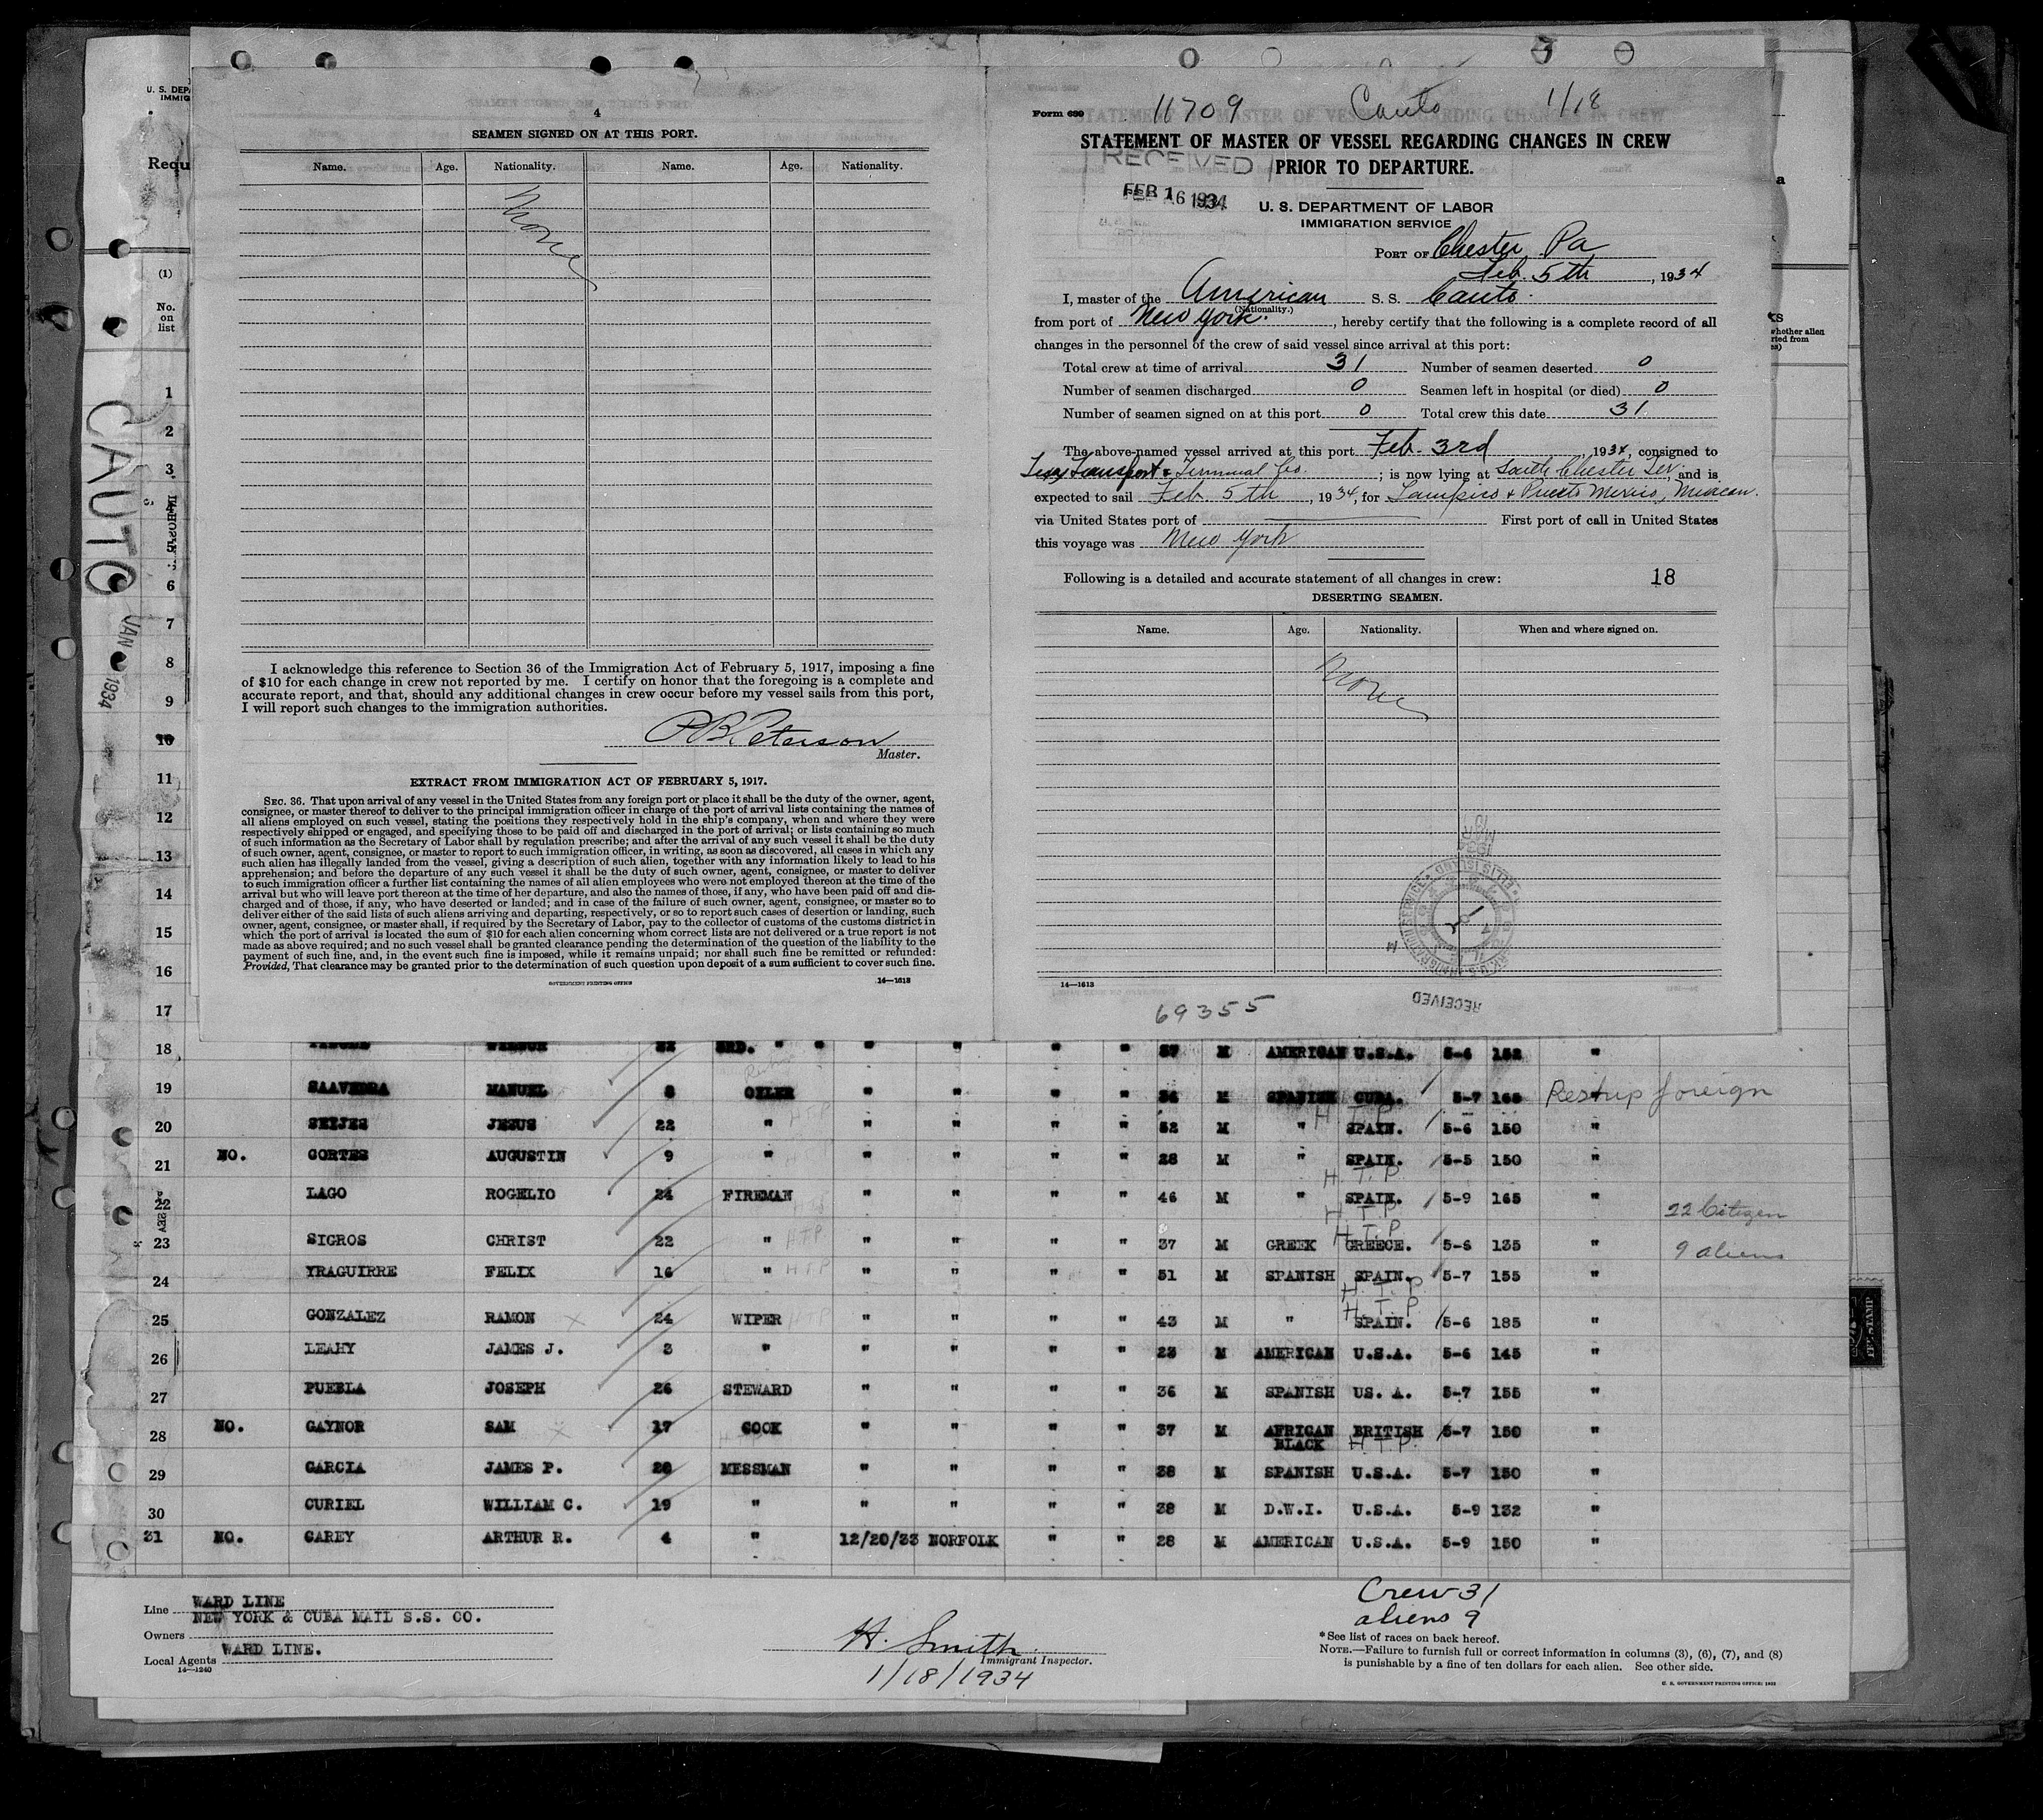 4
SEAMEN SIGNED ON AT THIS PORT.
Name. Age. Nationality. Name. Age. Nationality.
None
I acknowledge this reference to Section 36 of the Immigration Act of February 5, 1917, imposing a fine
of $10 for each change in crew not reported by me. I certify on honor that the foregoing is a complete and
accurate report, and that, should any additional changes in crew occur before my vessel sails from this port,
I will report such changes to the immigration authorities.
P B Peterson
Master.
EXTRACT FROM IMMIGRATION ACT OF FEBRUARY 5, 1917.
SEC. 36. That upon arrival of any vessel in the United States from any foreign port or place it shall be the duty of the owner, agent,
consignee, or master thereof to deliver to the principal immigration officer in charge of the port of arrival lists containing the names of
all aliens employed on such vessel, stating the positions they respectively hold in the ship's company, when and where they were
respectively shipped or engaged, and specifying those to be paid off and discharged in the port of arrival; or lists containing so much
of such information as the Secretary of Labor shall by regulation prescribe; and after the arrival of any such vessel it shall be the duty
of such owner, agent, consignee, or master to report to such immigration officer, in writing, as soon as discovered, all cases in which any
such alien has illegally landed from the vessel, giving a description of such alien, together with any information likely to lead to his
apprehension; and before the departure of any such vessel it shall be the duty of such owner, agent, consignee, or master to deliver
to such immigration officer a further list containing the names of all alien employees who were not employed thereon at the time of the
arrival but who will leave port thereon at the time of her departure, and also the names of those, if any, who have been paid off and dis-
charged and of those, if any, who have deserted or landed; and in case of the failure of such owner, agent, consignee, or master so to
deliver either of the said lists of such aliens arriving and departing, respectively, or so to report such cases of desertion or landing, such
owner, agent, consignee, or master shall, if required by the Secretary of Labor, pay to the collector of customs of the customs district in
which the port of arrival is located the sum of $10 for each alien concerning whom correct lists are not delivered or a true report is not
made as above required; and no such vessel shall be granted clearance pending the determination of the question of the liability to the
payment of such fine, and, in the event such fine is imposed, while it remains unpaid; nor shall such fine be remitted or refunded:
Provided, That clearance may be granted prior to the determination of such question upon deposit of a sum sufficient to cover such fine.
GOVERNMENT PRINTING OFFICE 14—1613
Form 689 11709 Cauto 1/18
STATEMENT OF MASTER OF VESSEL REGARDING CHANGES IN CREW
PRIOR TO DEPARTURE.
RECEIVED
FEB 16 1934
U. S. DEPARTMENT OF LABOR
IMMIGRATION SERVICE
PORT OF Chester, Pa
Feb. 5th, 1934
I, master of the American S. S. Cauto.
(Nationality.)
from port of New York., hereby certify that the following is a complete record of all
changes in the personnel of the crew of said vessel since arrival at this port:
Total crew at time of arrival 31 Number of seamen deserted 0
Number of seamen discharged 0 Seamen left in hospital (or died) 0
Number of seamen signed on at this port 0 Total crew this date 31
The above-named vessel arrived at this port Feb. 3rd, 1934, consigned to
Texas Transport & Terminal Co.; is now lying at South Chester Ter. and is
expected to sail Feb. 5th, 1934, for Tampico & Puerto Mexico, Mexican.
via United States port of First port of call in United States
this voyage was New York
Following is a detailed and accurate statement of all changes in crew: 18
DESERTING SEAMEN.
Name. Age. Nationality. When and where signed on.
None
14—1613
RECEIVED
69355
U. S. DEPA
IMMIG
Requ
(1)
No.
on
list
CAUTO
JAN 1934
1
2
3
6
7
8
9
10
11
12
13
14
15
16
17
18 3RD. " " " " " " 37 M AMERICAN U.S.A. 5-6 152 "
19 SAAVEDRA MANUEL 8 OILER " " " " 36 M SPANISH CUBA. 5-7 165 Reshup foreign
20 SEIJES JESUS 22 " " " " " 52 M " SPAIN. 5-6 150 "
21 NO. CORTES AUGUSTIN 9 " " " " " 28 M " SPAIN. 5-5 150 "
22 LAGO ROGELIO 24 FIREMAN " " " " 46 M " SPAIN. 5-9 165 " 22 Citizen
23 SIGROS CHRIST 22 " " " " " 37 M GREEK GREECE. 5-6 135 " 9 aliens
24 YRAGUIRRE FELIX 16 " " " " " 51 M SPANISH SPAIN. 5-7 155 "
25 GONZALEZ RAMON 24 WIPER " " " " 43 M " SPAIN. 5-6 185 "
26 LEAHY JAMES J. 3 " " " " " 23 M AMERICAN U.S.A. 5-6 145 "
27 PUEBLA JOSEPH 26 STEWARD " " " " 36 M SPANISH US. A. 5-7 155 "
28 NO. GAYNOR SAM 17 COOK " " " " 37 M AFRICAN BLACK BRITISH H.T.P. 5-7 150 "
29 GARCIA JAMES P. 20 MESSMAN " " " " 38 M SPANISH U.S.A. 5-7 150 "
30 CURIEL WILLIAM C. 19 " " " " " 38 M D.W.I. U.S.A. 5-9 132 "
31 NO. CAREY ARTHUR R. 4 " 12/20/33 NORFOLK " " 28 M AMERICAN U.S.A. 5-9 150 "
Line WARD LINE
NEW YORK & CUBA MAIL S.S. CO.
Owners
Local Agents WARD LINE.
14—1240
H. Smith
Immigrant Inspector.
1/18/1934
Crew 31
aliens 9
*See list of races on back hereof.
NOTE.—Failure to furnish full or correct information in columns (3), (6), (7), and (8)
is punishable by a fine of ten dollars for each alien. See other side.
U. S. GOVERNMENT PRINTING OFFICE: 1932